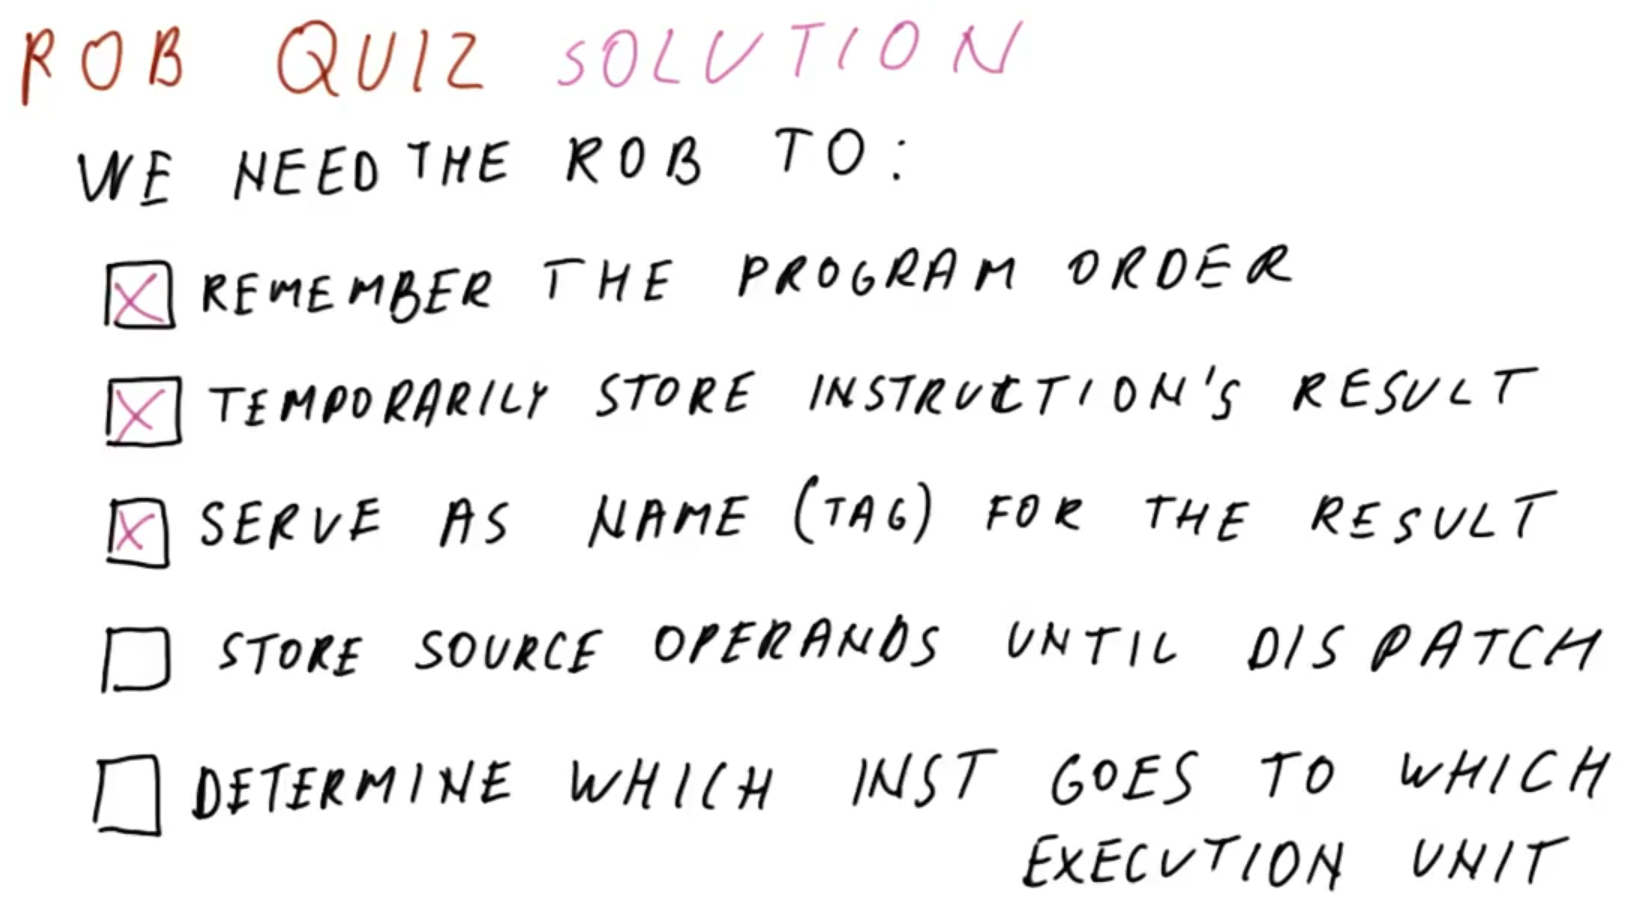 ROB QUIZ SOLUTION
WE NEED THE ROB TO:
REMEMBER THE PROGRAM ORDER
TEMPORARILY STORE INSTRUCTION'S RESULT
SERVE AS NAME (TAG) FOR THE RESULT
STORE SOURCE OPERANDS UNTIL DISPATCH
DETERMINE WHICH INST GOES TO WHICH
EXECUTION UNIT